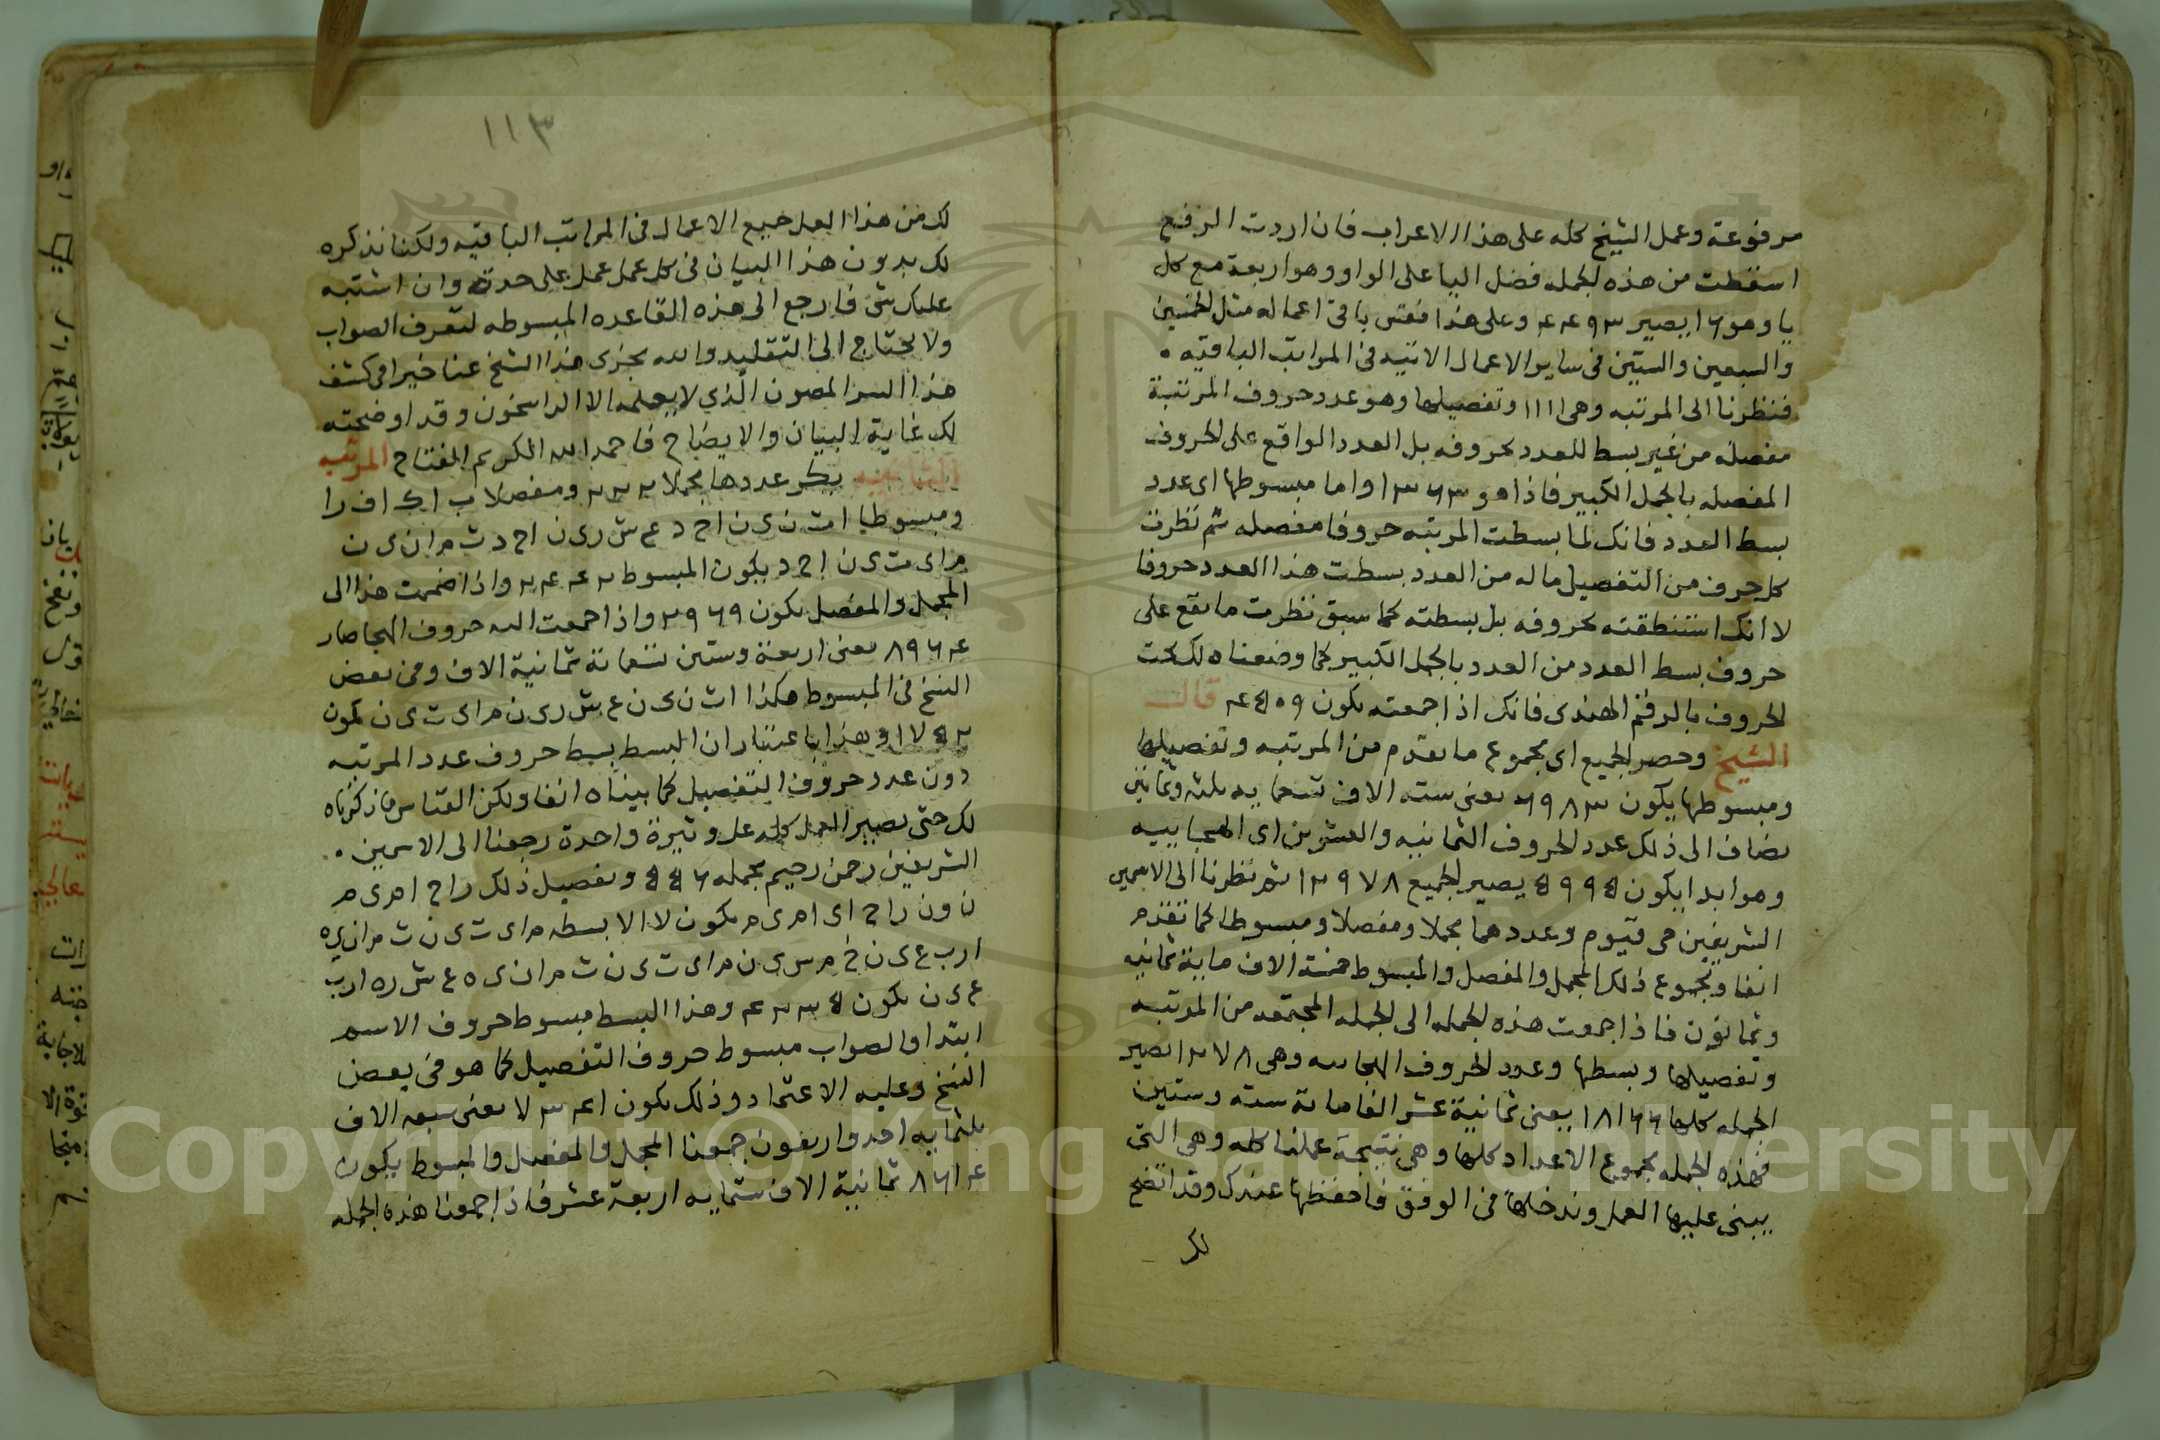 مرفوعة وعمل الشيخ كله على هذا الاعراب فان اردت الرفع
اسقطت من هذه الجمله فضل اليا على الواو وهو اربعة مع كل
يا وهو ١٦ يصير ٤٤٩٣ وعلى هذا فقس باقى اعماله مثل الخمسين
والسبعين والستين فى ساير الاعمال الاتيه فى المراتب الباقيه
فنظرنا الى المرتبه وهى ١١١ وتفصيلها وهو عدد حروف المرتبة
مفصله من غير بسط للعدد بحروفه بل العدد الواقع على الحروف
المفصله بالجمل الكبير فاذا هو ١٣٦٣ واما مبسوطها اى عدد
بسط العدد فانك لما بسطت المرتبه حروفا مفصله ثم نظرت
كل حرف من التفصيل ماله من العدد بسطت هذا العدد حروفا
لا انك استنطقته بحروفه بل بسطته كما سبق نظرت ما يقع على
حروف بسط العدد من العدد بالجمل الكبير كما وضعناه لك تحت
الحروف بالرقم الهندى فانك اذا جمعته يكون ٤٥٠٩ قال
الشيخ وحصر الجميع اى مجموع ما تقدم من المرتبه وتفصيلها
ومبسوطها يكون ٦٩٨٣ يعنى سته الاف تسعمايه ثلثه وثمانين
يضاف الى ذلك عدد الحروف الثمانيه والعشرين اى الهجاييه
وهو ابدا يكون ٥٩٩٥ يصير الجميع ١٢٩٧٨ ثم نظرنا الى الاسمين
الشريفين حى قيوم وعددهما مجملا ومفصلا ومبسوطا كما تقدم
انفا ومجموع ذلك المجمل والمفصل والمبسوط خمسة الاف ماية ثمانيه
وثمانون فاذا جمعت هذه الجمله الى الجمله المجتمعه من المرتبه
وتفصيلها وبسطها وعدد الحروف الهجاييه وهى ١٢٩٧٨ تصير
الجمله كلها ١٨١٦٦ يعنى ثمانية عشر الفا ماىة ستة وستين
فهذه الجمله مجموع الاعداد كلها وهى نتيجة عملنا كله وهى التى
يبنى عليها العمل وندخلها فى الوفق فاحفظها عندك وقد اتضح
لك
١١٣
لك من هذا العمل جميع الاعمال فى المراتب الباقيه ولكنا نذكره
لك بدون هذا البيان فى كل عمل عمل على حدته وان اشتبه
عليك شئ فارجع الى هذه القاعده المبسوطه لتعرف الصواب
ولا تحتاج الى التقليد والله يجزى هذا الشيخ عنا خيرا فى كشف
هذا السر المصون الذي لا يعلمه الا الراسخون وقد اوضحته
لك غاية البيان والايضاح فاحمد الله الكريم الفتاح المرتبه
الثانيه بكر عددها مجملا ٢٢٢ ومفصلا ب ا ك ا ف ر ا
ومبسوطا ا ث ن ى ن ا ح د ع ش ر ى ن ا ح د ث م ا ن ى ن
م ا ى ت ى ن ا ح د يكون المبسوط ٤٤٢ واذا ضممت هذا الى
المجمل والمفصل يكون ٢٩٦٩ واذا جمعت اليه حروف الهجا صار
٨٩٦٤ يعنى اربعة وستين تسعماىة ثمانية الاف وفى بعض
النسخ فى المبسوط هكذا ا ث ن ى ن ع ش ر ى ن م ا ى ت ى ن يكون
وهذا باعتبار ان البسط بسط حروف عدد المرتبه
دون عدد حروف التفصيل كما بيناه انفا ولكن القياس ما ذكرناه
لك حتى يصير العمل كله على وتيرة واحدة رجعنا الى الاسمين
الشريفين رحمن رحيم مجمله ٥٥٦ وتفصيل ذلك را ح ا م ى م
ن و ن را ح ا ى ا م ى م يكون لا الا بسطه م ا ى ت ى ن ث م ا ن ى ه
ا ر ب ع ى ن خ م س ى ن م ا ى ت ى ن ث م ا ن ى ه ع ش ر ه ا ر ب
ع ى ن يكون ٤٢٣٥ وهذا البسط مبسوط حروف الاسم
ابتدا والصواب مبسوط حروف التفصيل كما هو فى بعض
النسخ وعليه الاعتماد وذلك يكون ٧٣٤١ يعنى سبعه الاف
ثلثمايه احد واربعون جمعنا المجمل والمفصل والمبسوط يكون
٨٦١٤ ثمانية الاف ستمايه اربعة عشر فاذا جمعنا هذه الجمله
Copyright © King Saud University